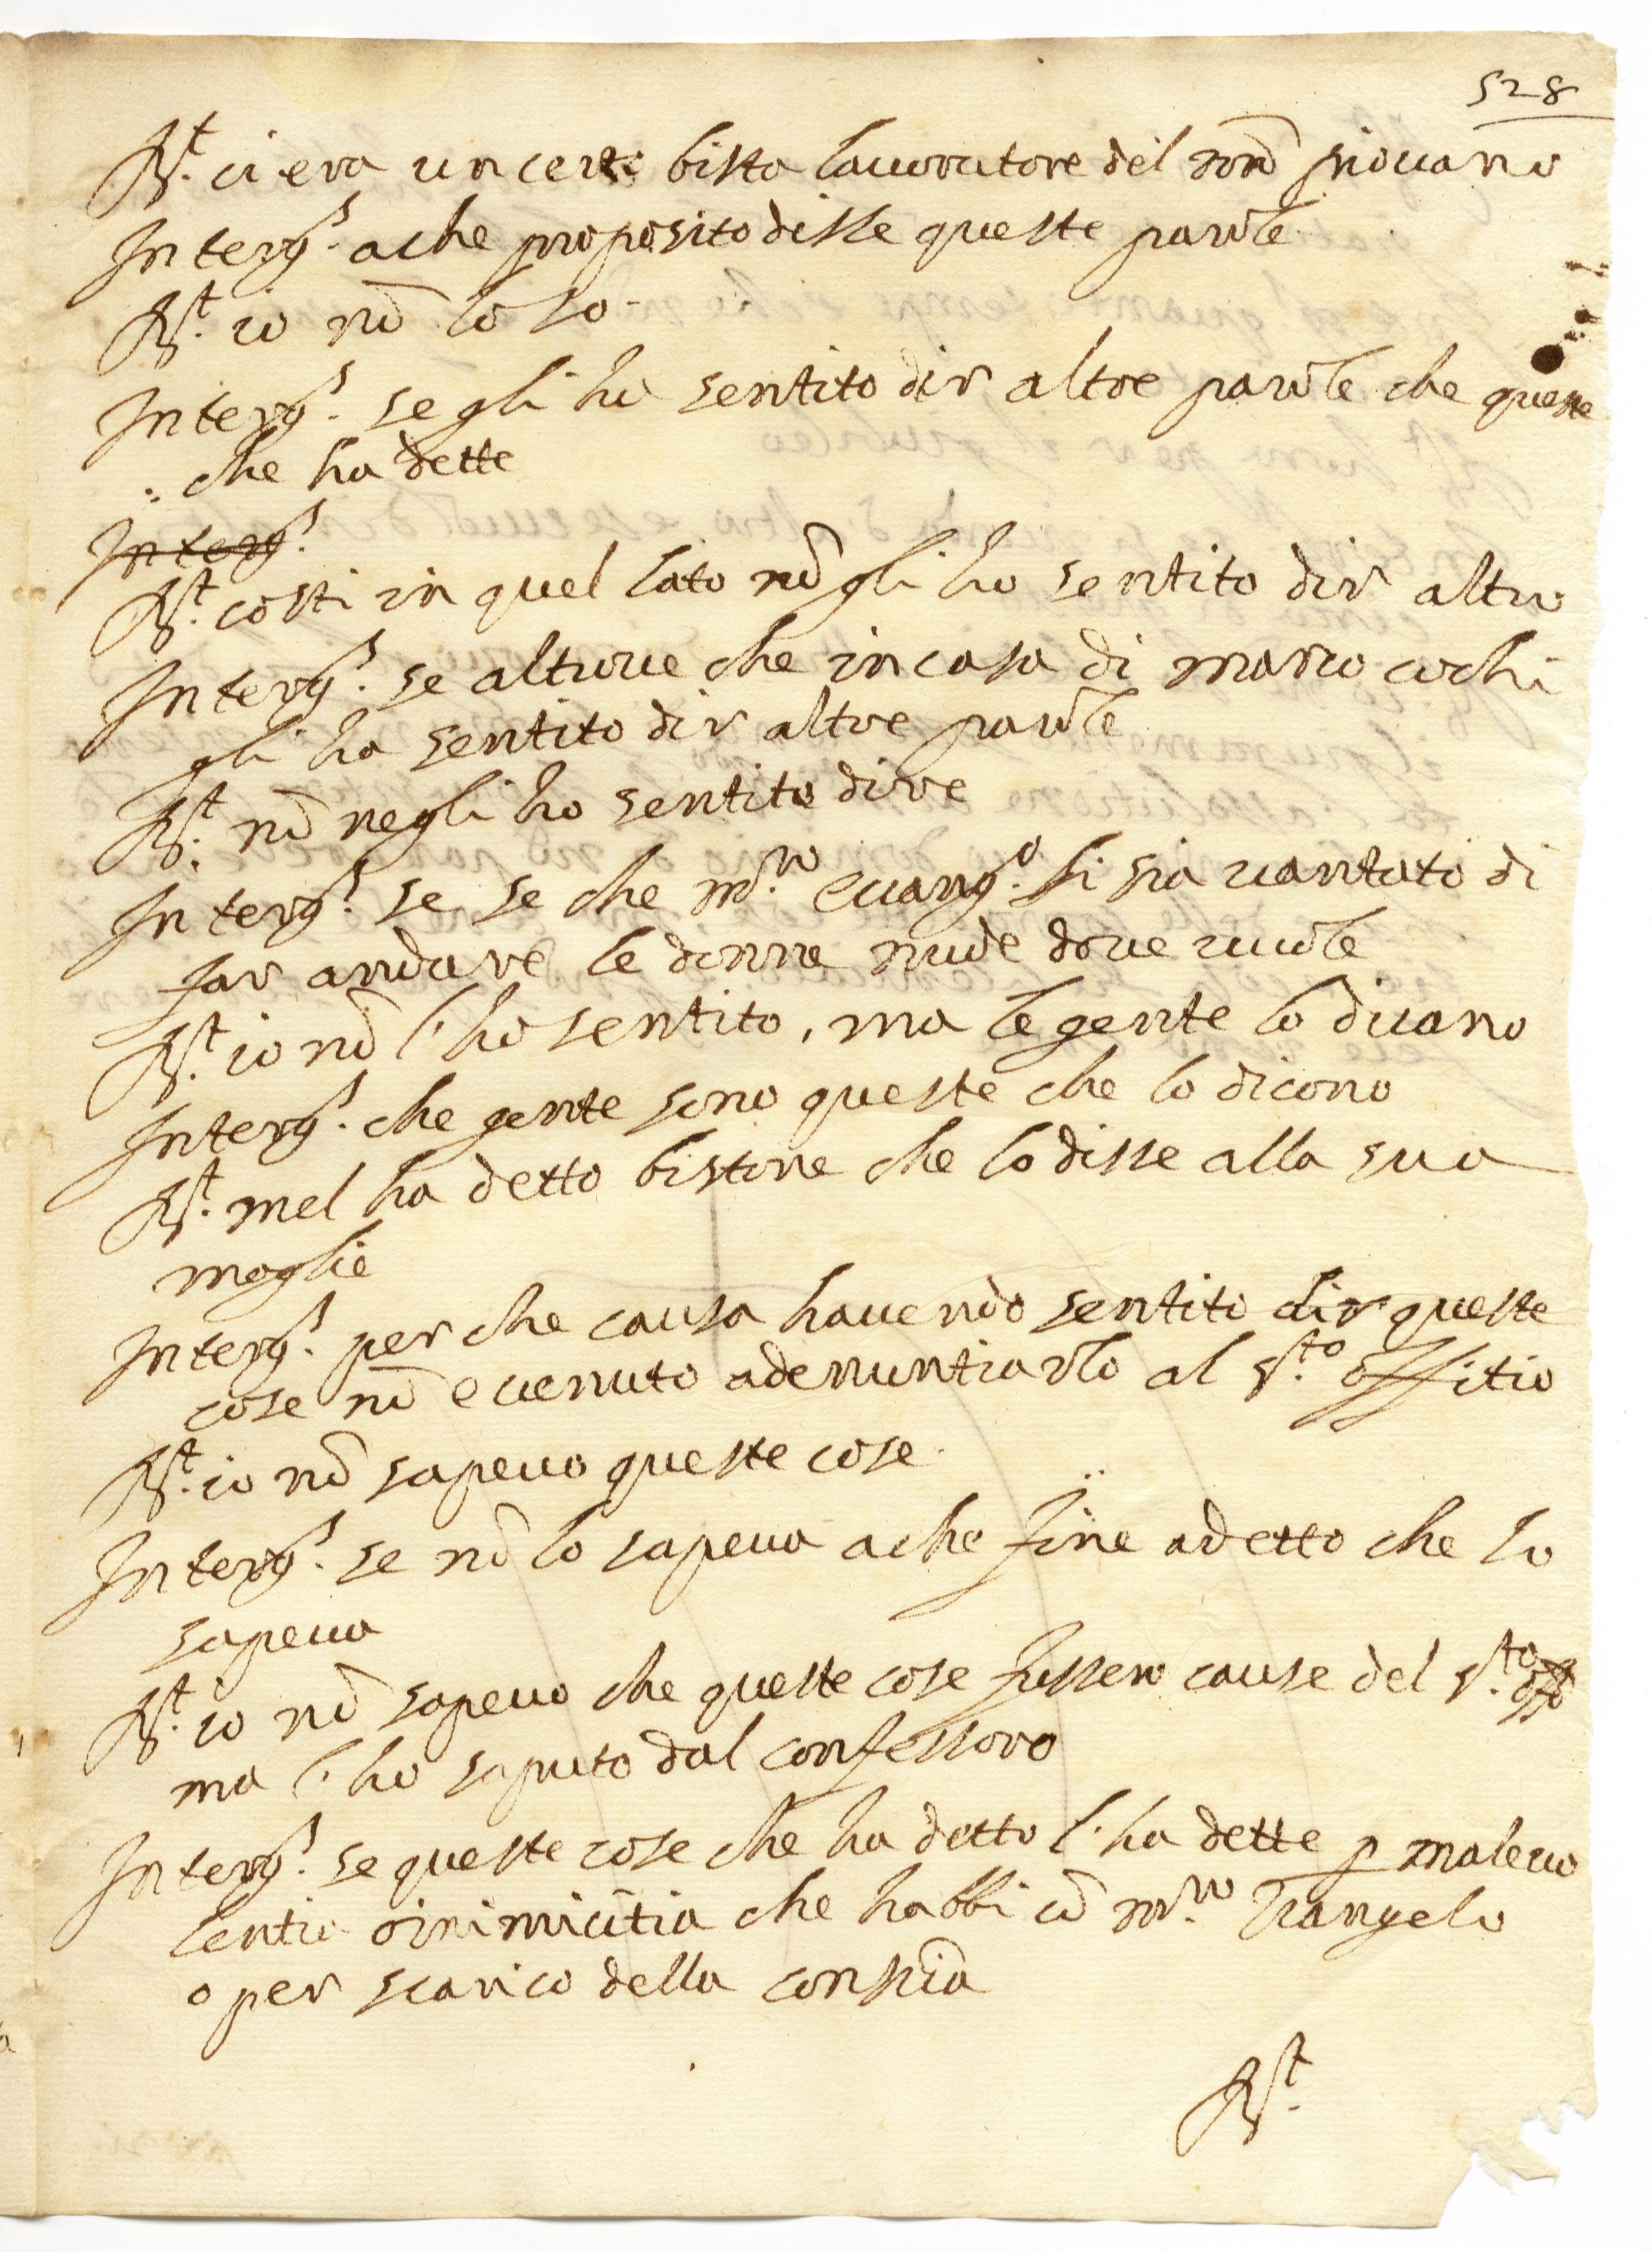 528
R.t ci era un certo bista lavoratore del piovano
Interg.s ache proposito disse queste parole
R.t io nō lo so
Interg.s se gli ha sentito dir altre parole che queste
che ha dette
Interg.s
R.t costi in quel lato nō gli ho sentito dir altro
Interg.s se altrove che in casa di marco cochi
gli ha sentito dir altre parole
R.t nō negli ho sentito dire
Interg.s se se che m.ro evang.o si sia vantato di
far andare le donne nude dove vuole
R.t io nō l'ho sentito, ma le gente lo dicano
Interg.s che gente sono queste che lo dicono
R.t mel ha detto bistone che lo disse alla sua
moglie
Interg.s per che causa havendo sentito dir queste
cose nō e venuto adenuntiarlo al s.to offitio
R.t io nō sapevo queste cose
Interg.s se nō lo sapeva ache fine adetto che lo
sapeva
R.t io nō sapevo che queste cose fussero cause del s.to offo
ma l'ho saputo dal confessoro
Interg.s se queste cose che ha detto l'ha dette p malevo
lentia oinimicitia che habbi cō m.ro
o per scarico della conscia
R.t